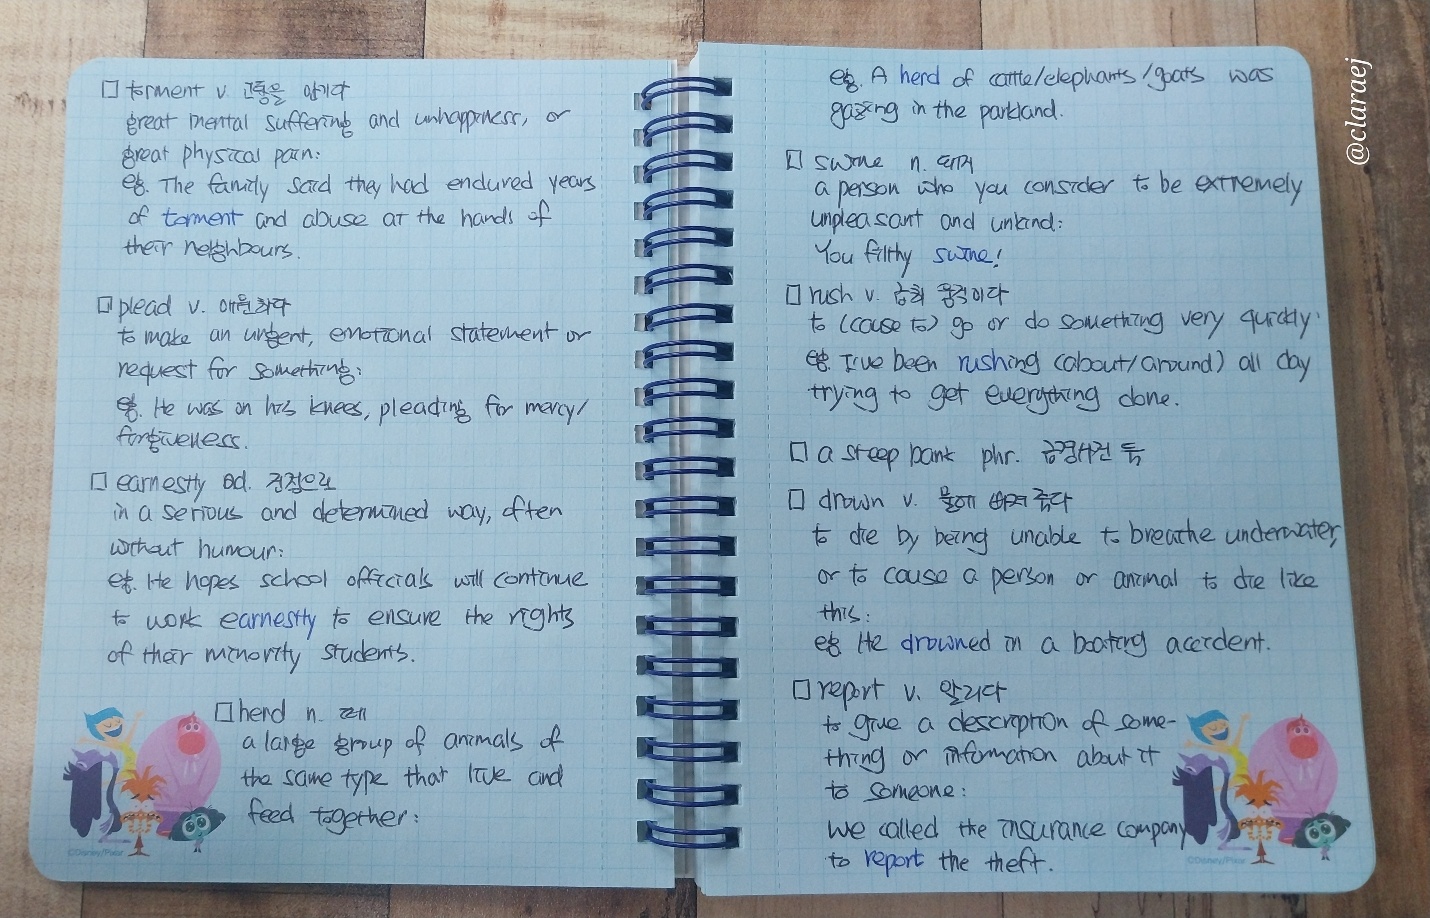 □ torment v. 고통을 안기다
great mental suffering and unhappiness, or
great physical pain:
eg. The family said they had endured years
of torment and abuse at the hands of
their neighbours.
□ plead v. 애원하다
to make an urgent, emotional statement or
request for something:
eg. He was on his knees, pleading for mercy/
forgiveness.
□ earnestly ad. 진정으로
in a serious and determined way, often
without humour:
eg. He hopes school officials will continue
to work earnestly to ensure the rights
of their minority students.
□ herd n. 떼
a large group of animals of
the same type that live and
feed together:
©Disney/Pixar
eg. A herd of cattle/elephants/goats was
gazing in the parkland.
□ swine n. 돼지
a person who you consider to be extremely
unpleasant and unkind:
You filthy swine!
□ rush v. 급히 움직이다
to (cause to) go or do something very quickly:
eg. I've been rushing (about/around) all day
trying to get everything done.
□ a steep bank phr. 급경사진 둑
□ drown v. 물에 빠져 죽다
to die by being unable to breathe underwater,
or to cause a person or animal to die like
this:
eg. He drowned in a boating accident.
□ report v. 알리다
to give a description of some-
thing or information about it
to someone:
We called the insurance company
to report the theft.
©Disney/Pixar
@claraej